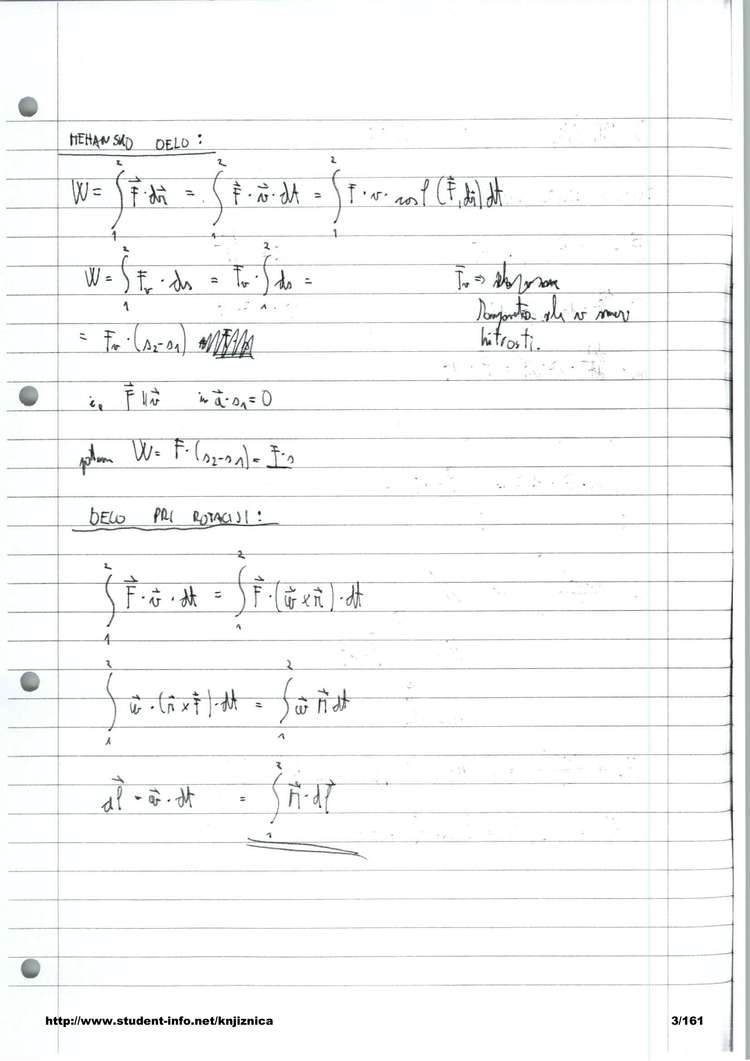 MEHANSKO DELO:
W = ∫₁² F⃗ · dr⃗ = ∫₁² F⃗ · v⃗ · dt = ∫₁² F · v · cos φ (F⃗, dr⃗) dt
W = ∫₁² Fᵥ · ds = Fᵥ · ∫₁² ds =
Fᵥ ⇒
komponenta sile v smeri
hitrosti.
= Fᵥ · (s₂-s₁)
F⃗ ∥ v⃗ in s₁ = 0
potem W = F · (s₂-s₁) = F · s
DELO PRI ROTACIJI:
∫₁² F⃗ · v⃗ · dt = ∫₁² F⃗ · (ω⃗ × r⃗) · dt
∫₁² ω⃗ · (r⃗ × F⃗) · dt = ∫₁² ω⃗ M⃗ dt
dφ⃗ = ω⃗ · dt = ∫₁² M⃗ · dφ⃗
http://www.student-info.net/knjiznica
3/161